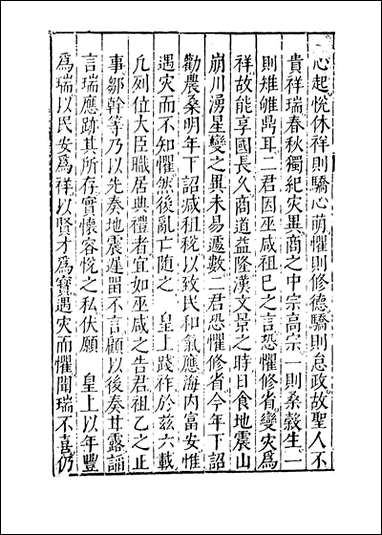 心起悅休祥則驕心萌懼則修德驕則怠政故聖人不
貴祥瑞春秋獨紀灾異商之中宗高宗一則桑榖生一
則雉雊鼎耳二君因巫咸祖巳之言恐懼修省變灾爲
祥故能享國長久商道益隆漢文景之時日食地震山
崩川湧星變之異未易遞數二君恐懼修省今年下詔
勸農桑明年下詔减租稅以致民和氣應海内富安惟
遇灾而不知懼然後亂亡随之 皇上踐祚於兹六載
凢列位大臣職居典禮者宜如巫咸之告君祖乙之正
事鄒幹等乃以先奏地震遲畱不言顧以後奏甘露誦
言瑞應跡其所存實懷容悅之私伏願 皇上以年豐
爲瑞以民安爲祥以賢才爲寶遇灾而懼聞瑞不喜仍